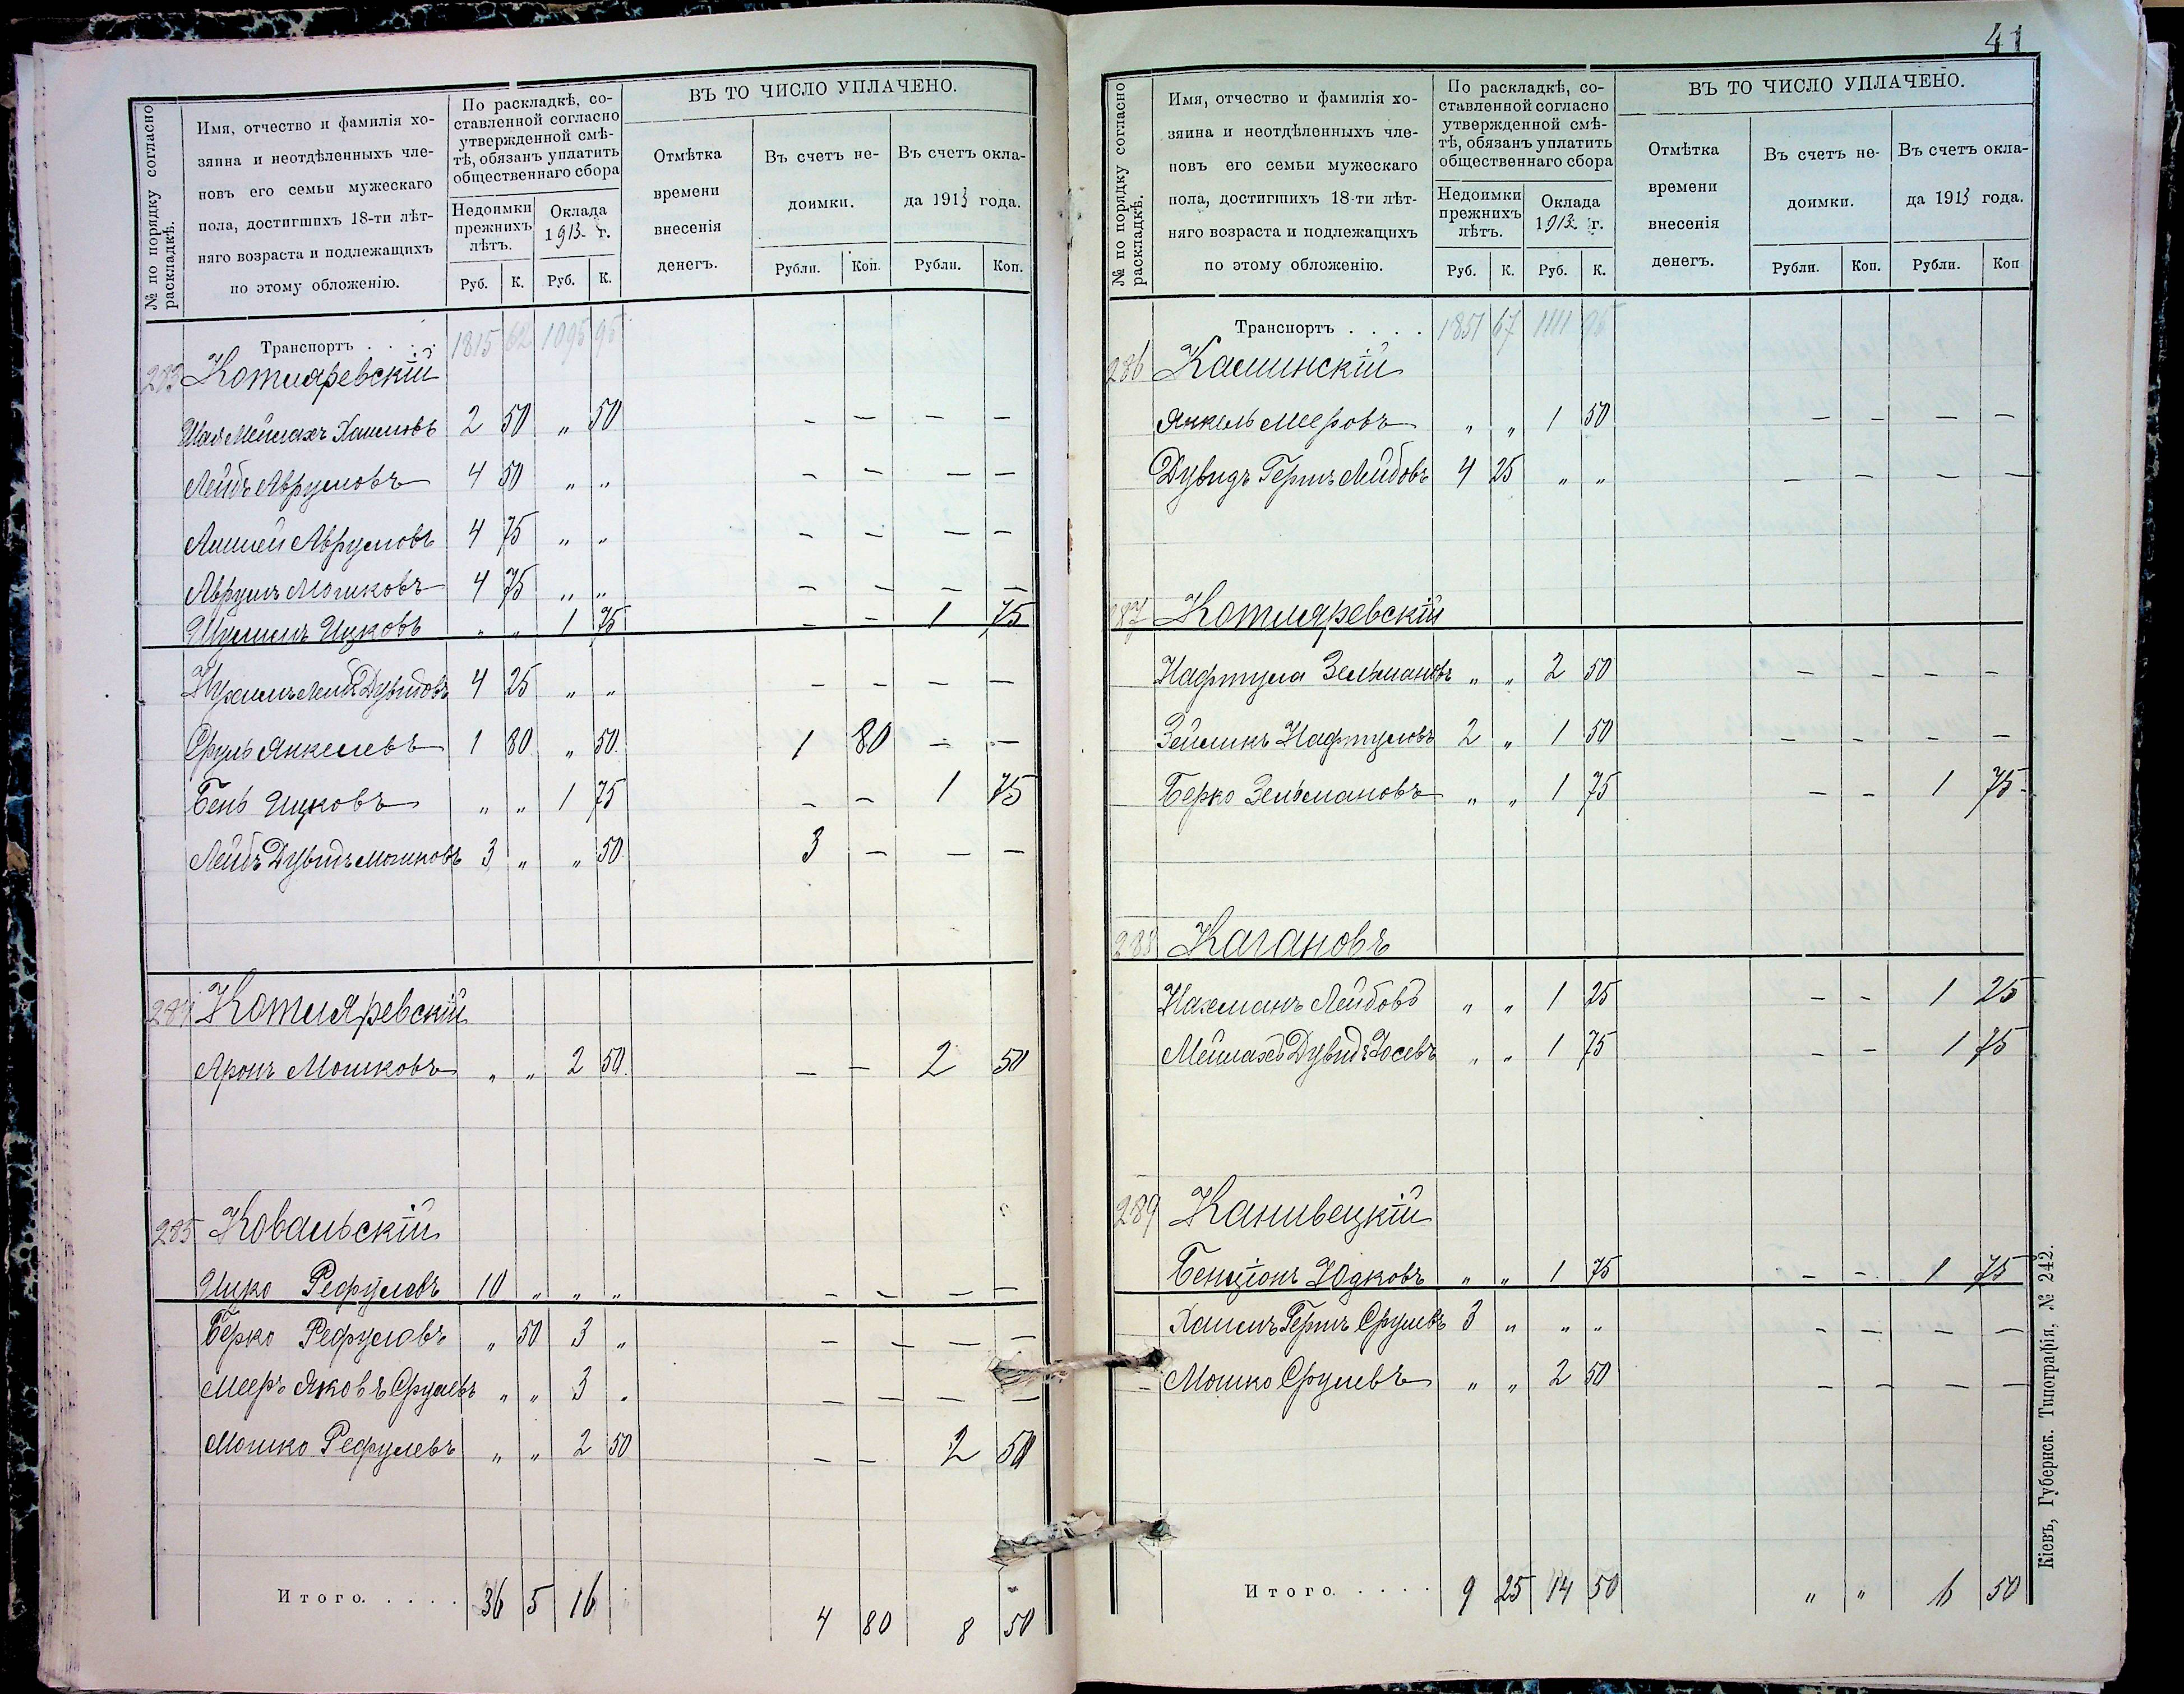 № по порядку согласно раскладкѣ.
Имя, отчество и фамилія хо-
зяина и неотдѣленныхъ чле-
новъ его семьи мужескаго
пола, достигшихъ 18-ти лѣт-
няго возраста и подлежащихъ
по этому обложенію.
По раскладкѣ, со-
ставленной согласно
утвержденной смѣ-
тѣ, обязанъ уплатить
общественнаго сбора
Недоимки прежнихъ лѣтъ.
Оклада 1913 г.
Руб. К. Руб. К.
ВЪ ТО ЧИСЛО УПЛАЧЕНО.
Отмѣтка
времени
внесенія
денегъ.
Въ счетъ не-
доимки.
Рубли. Коп.
Въ счетъ окла-
да 1913 года.
Рубли. Коп.
Транспортъ . . . . 1815 62 1095 95
283 Котляревскій
Шая Мейлахъ Хаимовъ 2 50 „ 50 — — — —
Лейбъ Аврумовъ 4 50 „ „ — — — —
Аврумовъ 4 75 „ „ — — — —
Аврумъ Мошковъ 4 75 „ „ — — — —
Ицковъ „ „ 1 75 — — 1 75
Нухимъ Лейбъ Дувидовъ 4 25 „ „ — — — —
Сруль Янкелевъ 1 80 „ 50 1 80 — —
Бень Ицковъ „ „ 1 75 — — 1 75
Лейбъ Дувидъ Мошковъ 3 „ „ 50 3 — — —
284 Котляревскій
Аронъ Мошковъ „ „ 2 50 — — 2 50
285 Ковальскій
Ицко Рефулевъ 10 „ „ „ — — — —
Берко Рефуловъ „ 50 3 „ — — — —
Мееръ Яковъ Срулевъ „ „ 3 „ — — — —
Мошко Рефулевъ „ „ 2 50 — — 2 50
Итого. . . . . 36 5 16 4 80 8 50
41
№ по порядку согласно раскладкѣ.
Имя, отчество и фамилія хо-
зяина и неотдѣленныхъ чле-
новъ его семьи мужескаго
пола, достигшихъ 18-ти лѣт-
няго возраста и подлежащихъ
по этому обложенію.
По раскладкѣ, со-
ставленной согласно
утвержденной смѣ-
тѣ, обязанъ уплатить
общественнаго сбора
Недоимки прежнихъ лѣтъ.
Оклада 1913 г.
Руб. К. Руб. К.
ВЪ ТО ЧИСЛО УПЛАЧЕНО.
Отмѣтка
времени
внесенія
денегъ.
Въ счетъ не-
доимки.
Рубли. Коп.
Въ счетъ окла-
да 1913 года.
Рубли. Коп
Транспортъ . . . . 1851 67 1111 95
286 Калинскій
Янкель Мееровъ „ „ 1 50 — — — —
Дувидъ Гершъ Лейбовъ 4 25 „ „ — — — —
287 Котляревскій
Нафтула Зельмановъ „ „ 2 50 — — — —
Зейликъ Нафтуловъ 2 „ 1 50 — — — —
Берко Зельмановъ „ „ 1 75 — — 1 75
288 Кагановъ
Нахманъ Лейбовъ „ „ 1 25 — — 1 25
Мейлахъ Дувидъ Іосевъ „ „ 1 75 — — 1 75
289 Канивецкій
Бенціонъ Юдковъ „ „ 1 75 — — 1 75
Хаимъ Гершъ Срулевъ 3 „ „ „ — — — —
Мошко Срулевъ „ „ 2 50 — — — —
Итого. . . . . 9 25 14 50 „ „ 6 50
Кіевъ, Губернск. Типографія, № 242.